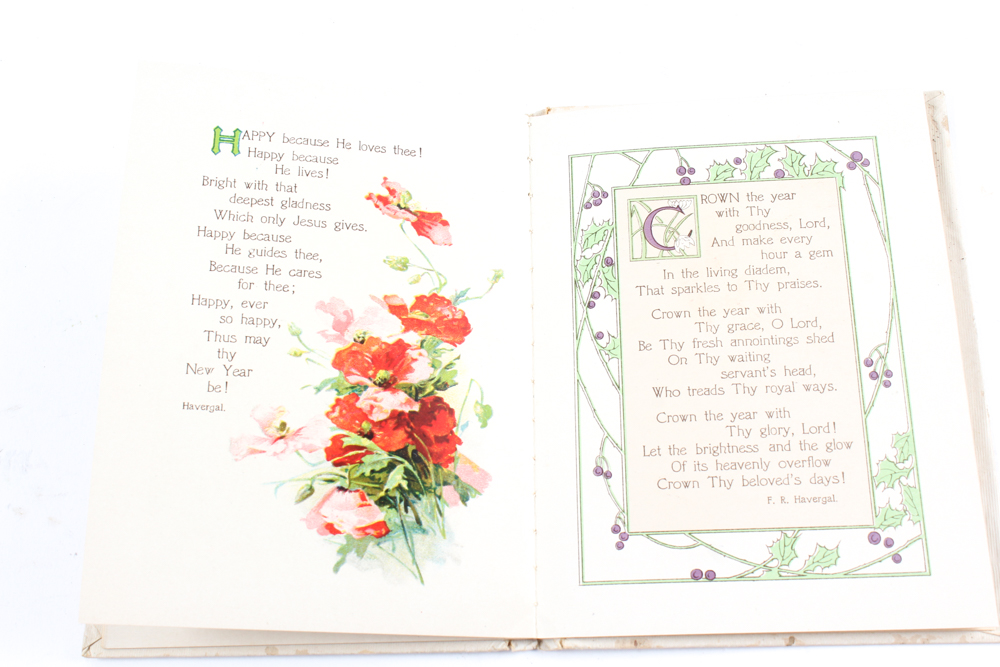 HAPPY because He loves thee!
Happy because
He lives!
Bright with that
deepest gladness
Which only Jesus gives.
Happy because
He guides thee,
Because He cares
for thee;
Happy, ever
so happy,
Thus may
thy
New Year
be!
Havergal.
CROWN the year
with Thy
goodness, Lord,
And make every
hour a gem
In the living diadem,
That sparkles to Thy praises.
Crown the year with
Thy grace, O Lord,
Be Thy fresh annointings shed
On Thy waiting
servant's head,
Who treads Thy royal ways.
Crown the year with
Thy glory, Lord!
Let the brightness and the glow
Of its heavenly overflow
Crown Thy beloved's days!
F. R. Havergal.